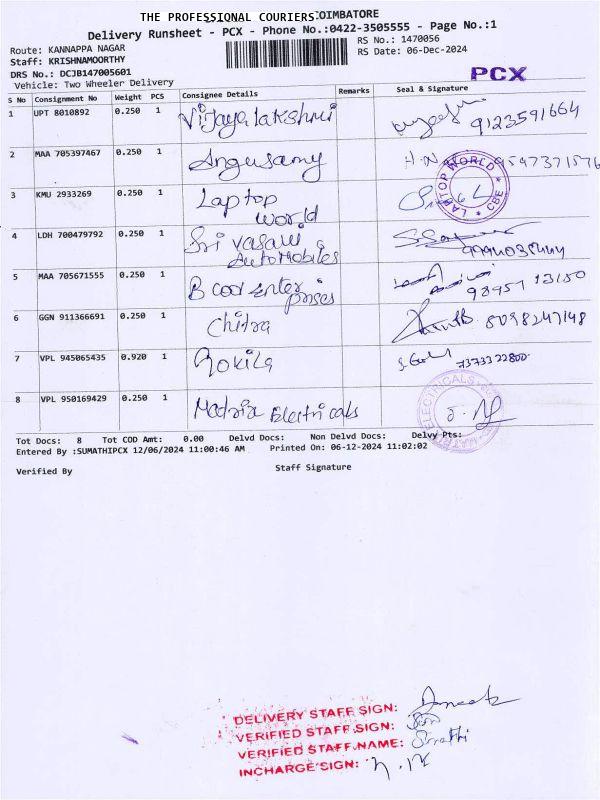 THE PROFESSIONAL COURIERS COIMBATORE
Delivery Runsheet - PCX - Phone No.:0422-3505555 - Page No.:1
Route: KANNAPPA NAGAR RS No.: 1470056
Staff: KRISHNAMOORTHY RS Date: 06-Dec-2024
DRS No.: DCJB147005601
PCX
Vehicle: Two Wheeler Delivery
S No Consignment No Weight PCS Consignee Details Remarks Seal & Signature
1 UPT 8010892 0.250 1 Vijayalakshmi 9123591664
2 MAA 705397467 0.250 1 Angusamy
3 KMU 2933269 0.250 1 Laptop
world LAPTOP WORLD * CBE *
4 LDH 700479792 0.250 1 Sri vasavi
Automobiles
5 MAA 705671555 0.250 1 B cool enter
prises
6 GGN 911366691 0.250 1 Chitra 8098247148
7 VPL 945065435 0.920 1 Rokila 7373322800
8 VPL 950169429 0.250 1 Electricals ELECTRICALS
Tot Docs: 8 Tot COD Amt: 0.00 Delvd Docs: Non Delvd Docs: Delvy Pts:
Entered By :SUMATHIPCX 12/06/2024 11:00:46 AM Printed On: 06-12-2024 11:02:02
Verified By Staff Signature
DELIVERY STAFF SIGN:
VERIFIED STAFF SIGN:
VERIFIED STAFF NAME:
INCHARGE SIGN: